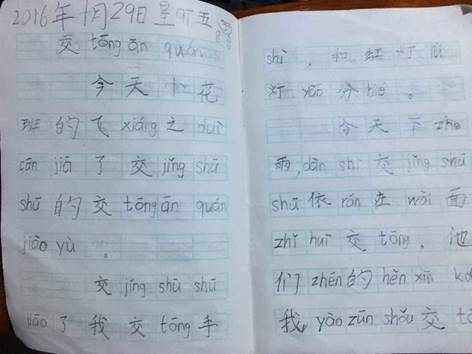 2016年1月29日星期五
交tōng ān quán
今天小花
班的飞xiáng之duì
cān jiā了交jǐng shū
shū的交tōng ān quán
jiào yù。
交jǐng shū shū
jiāo了我交tōng手
shì，和红灯
灯yào分bié。
今天下zhe
雨,dàn shì交jǐng shū
shū依rán在wài面
zhǐ huī交tōng，池
们zhēn的hěn xīn
我yào zūn shǒu交